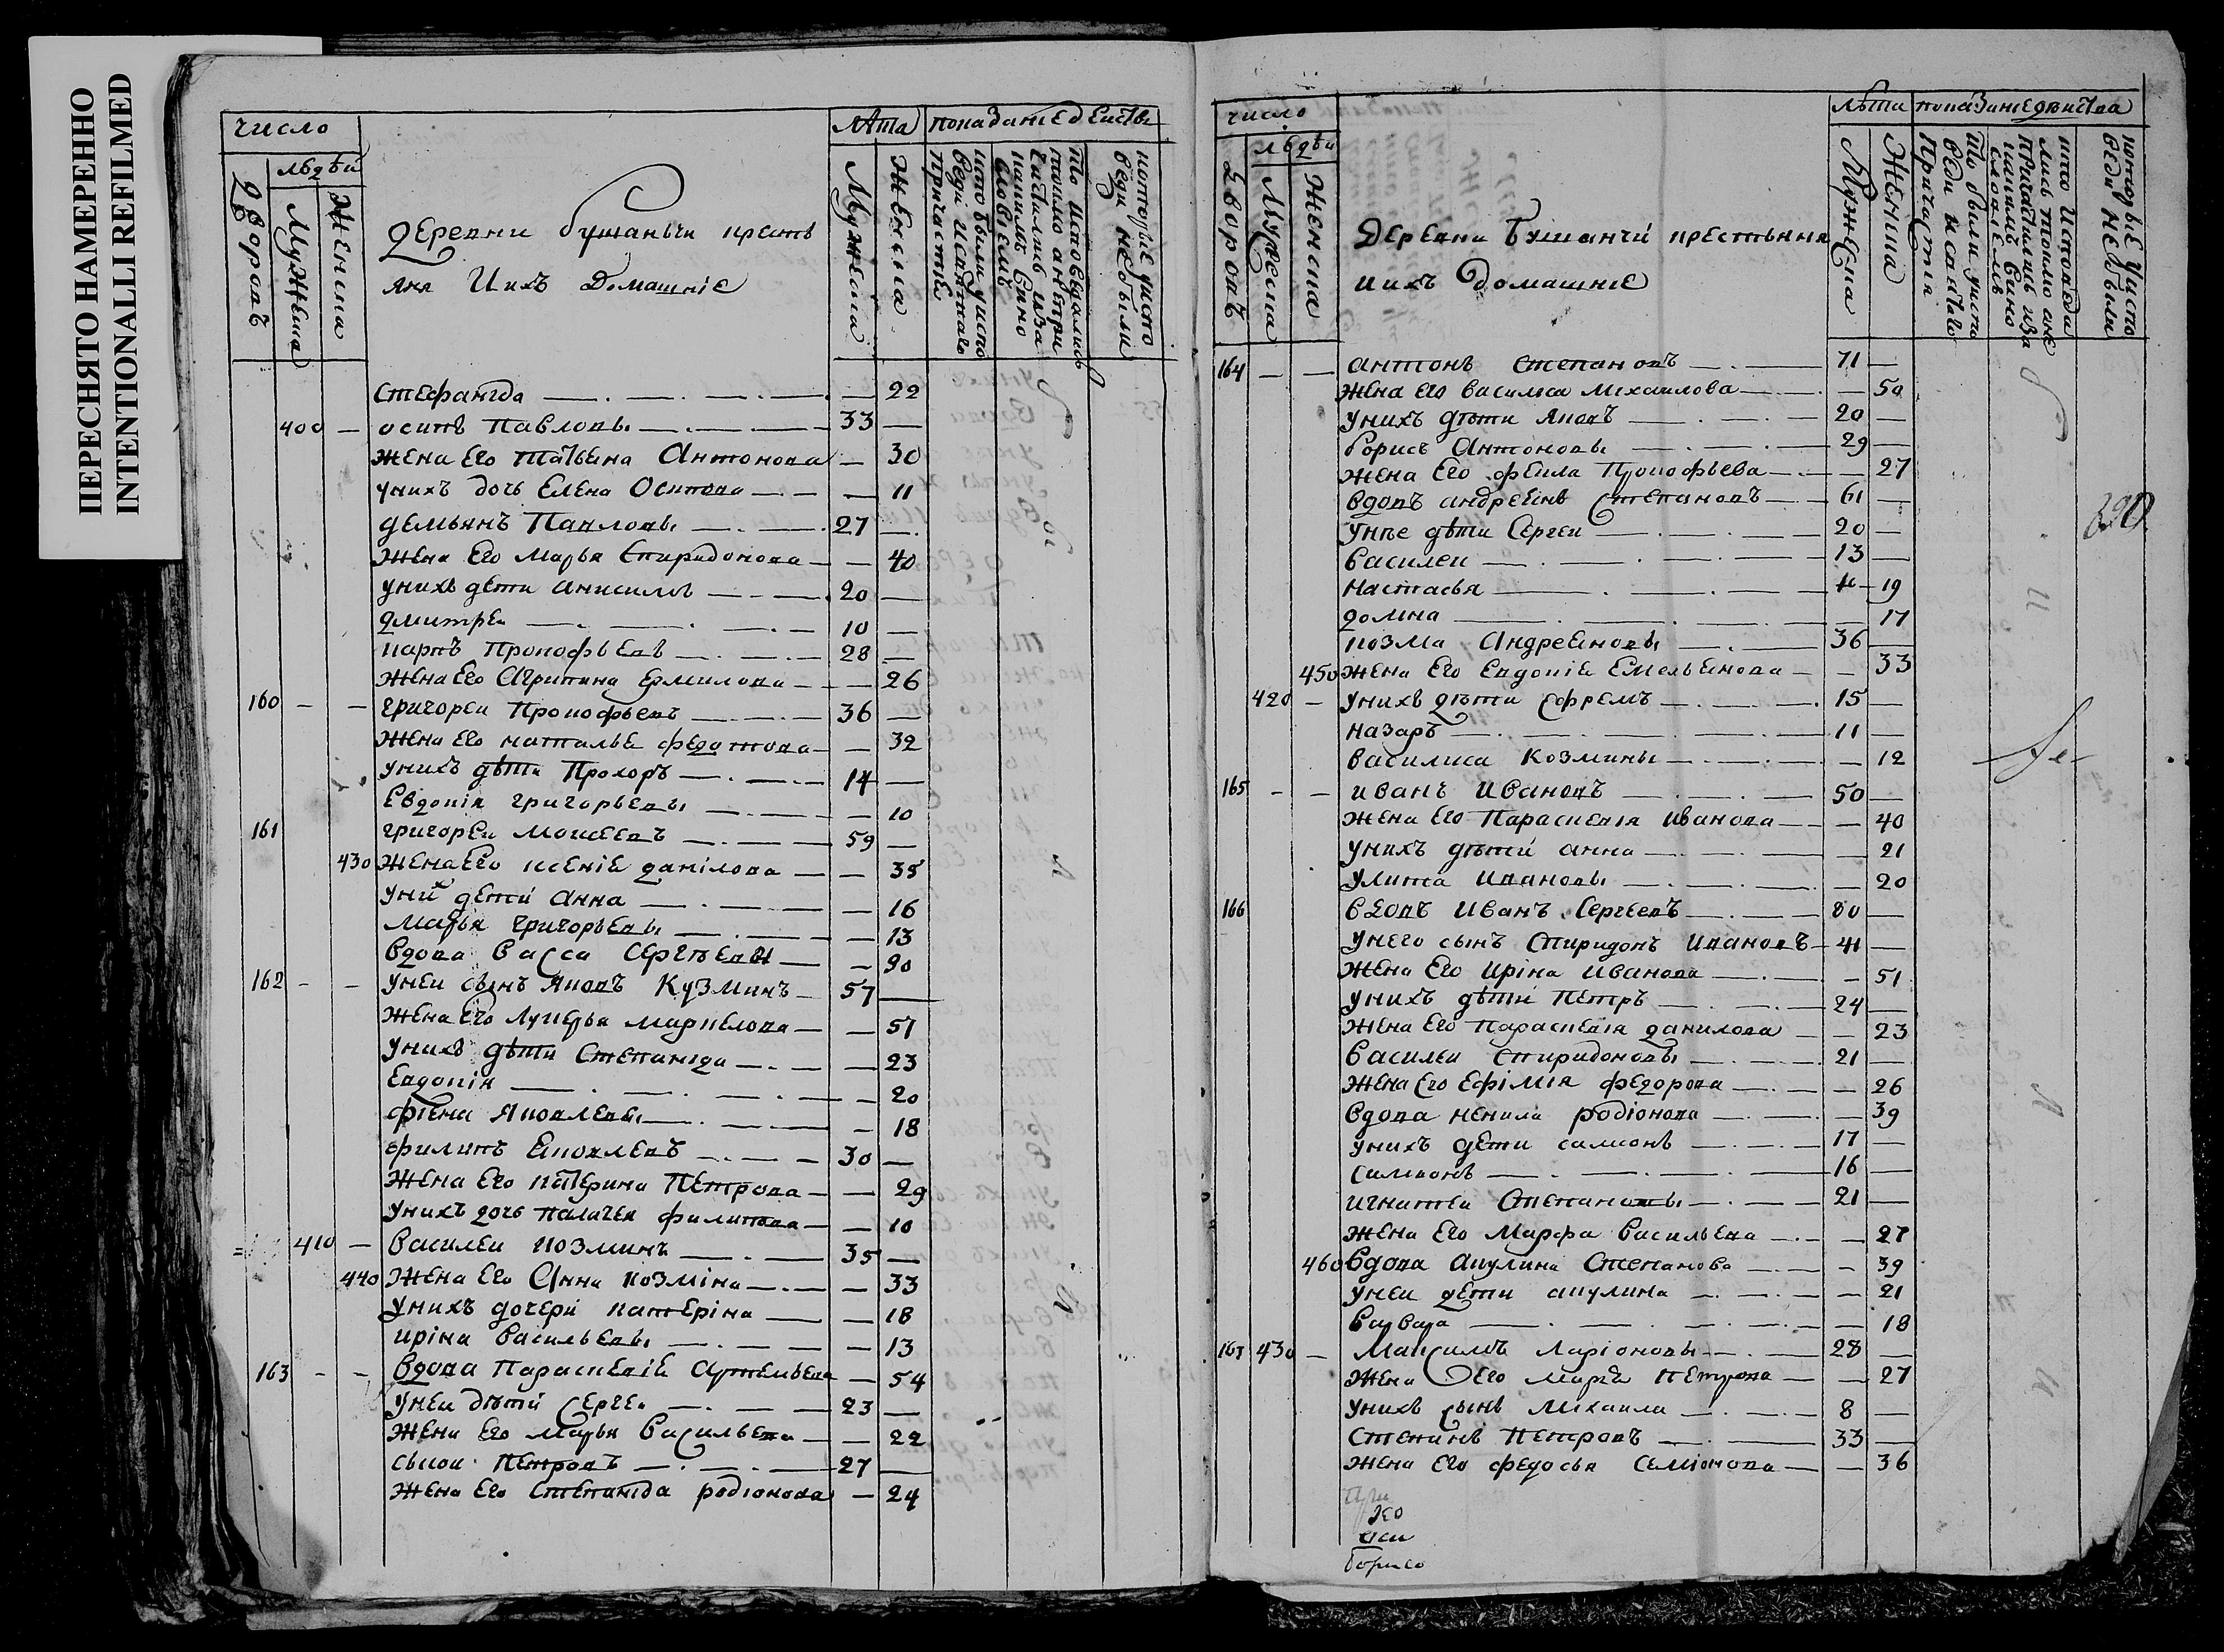 ПЕРЕСНЯТО НАМЕРЕННО
INTENTIONALLI REFILMED
число
людѣй
дворовъ
Мужеска
Женска
деревни бушаньчи крестъ
яня Ихъ домашніе
Лѣта
Мужеска
женска
показаніе действъ
стефанида 22
400 осипъ Павловы 33
жена Его татьяна Антонова 30
унихъ дочь Елена Осипова 11
демьянъ Павловы 27
жена Его Марья Спиридонова 40
унихъ дети анисимъ 20
дмитреи 10
карпъ Прокофьевъ 28
жена Его Агрипина Ермилова 26
160 григореи Прокофьевъ 36
жена Его наталья федотова 32
унихъ дѣти Прохоръ 14
Евдокія григорьевы 10
161 григореи Моисеевъ 59
430 жена Его ксеніе данілова 35
уних дети Анна 16
Марья григорьевы 13
вдова Васса Сергѣева 90
162 унеи сынъ Яковъ Кузминъ 57
жена Его Лукерья маркелова 51
унихъ дѣти Степанида 23
Евдокія 20
фіена Яковлевы 18
филипъ Еяковлевъ 30
жена Его катерина Петрова 29
унихъ дочь палагея филипова 10
410 василеи козминъ 35
440 жена Его Анна козміна 33
унихъ дочери катеріна 18
иріна васильевы 13
163 вдова Параскевіе Артемьева 54
унеи дѣтй Сергеи 23
жена Его Марья Васильева 22
сысои Петровъ 27
жена Его степанида родіонова 24
число
людѣй
дворовъ
Мужеска
женска
Деревни Бушанчи крестьяня
иихъ домашніе
лѣта
Мужеска
Женска
показаніе действа
164 антонъ степановъ 71
жена его василиса михаилова 50
унихъ дѣти Яковъ 20
борисъ Антоновы 29
жена Его фекла Прокофьева 27
вдовъ андреянъ степановъ 61
унѣе дѣти Сергеи 20
василеи 13
настасья 19
домна 17
козма Андреяновы 36
450 жена Его Евдокіе Емельянова 33
420 унихъ дѣти ефремъ 15
назаръ 11
василиса козмины 12
165 иванъ ивановъ 50
жена Его Параскевія иванова 40
унихъ дѣтй анна 21
улита ивановы 20
166 вдовъ иванъ Сергеевъ 80
унего сынъ Спиридонъ ивановъ 41
жена Его иріна иванова 51
унихъ дѣти Петръ 24
жена Его Параскевія данилова 23
василеи спиридоновы 21
жена Его ефімія федорова 26
вдова ненила родіонова 39
унихъ дети самсонъ 17
симеонъ 16
игнатеи Степановы 21
жена Его Марфа васильева 27
460 вдова акулина Степанова 39
унеи дети акулина 21
варвара 18
167 430 Максимъ Ларіоновы 28
жена Его Маріа Петрова 27
унихъ сынъ Михаила 8
Степанъ Петровъ 33
жена его федосья семіонова 36